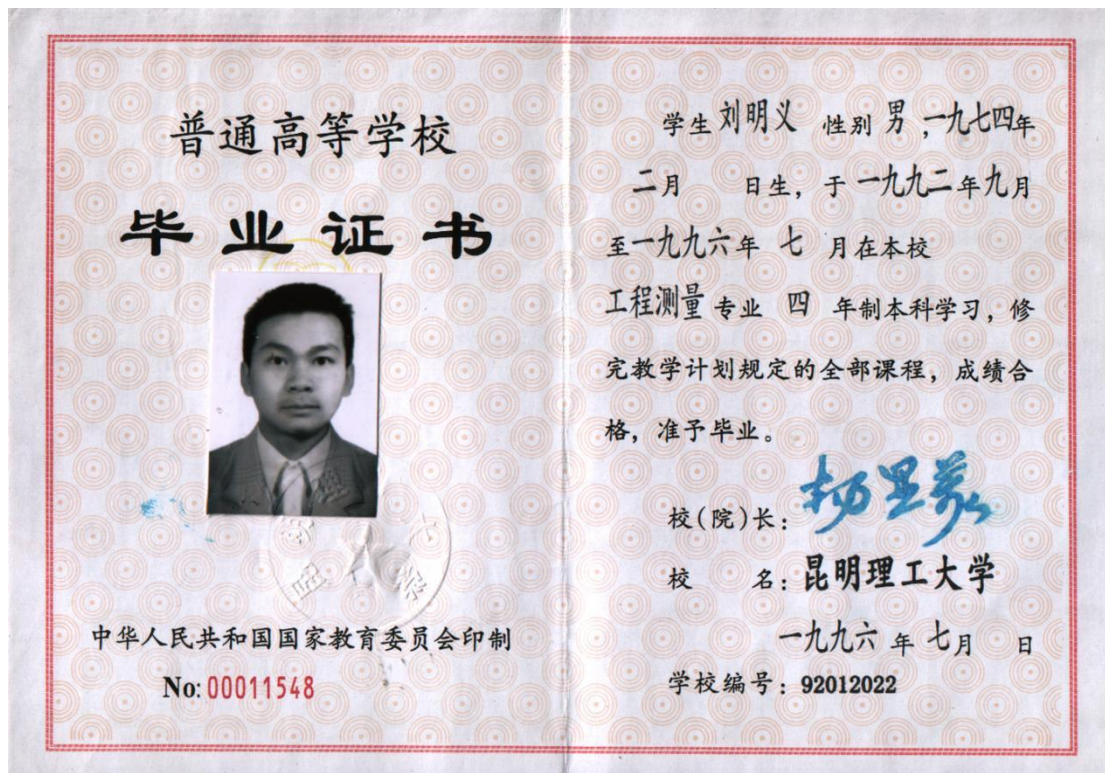 普通高等学校
毕业证书
中华人民共和国国家教育委员会印制
No: 00011548
学生 刘明义 性别 男 ,一九七四年
二月 日生，于 一九九二年九月
至一九九六年 七 月在本校
工程测量 专业 四 年制本科学习，修
完教学计划规定的全部课程，成绩合
格，准予毕业。
校(院)长：
校 名：昆明理工大学
一九九六 年 七月 日
学校编号：92012022